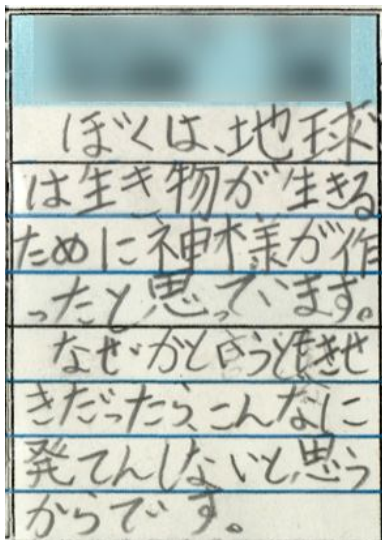 ぼくは、地球
は生き物が生きる
ために神様が作
ったと思っています。
なぜかと言うときせ
きだったら、こんなに
発てんしないと思う
からです。